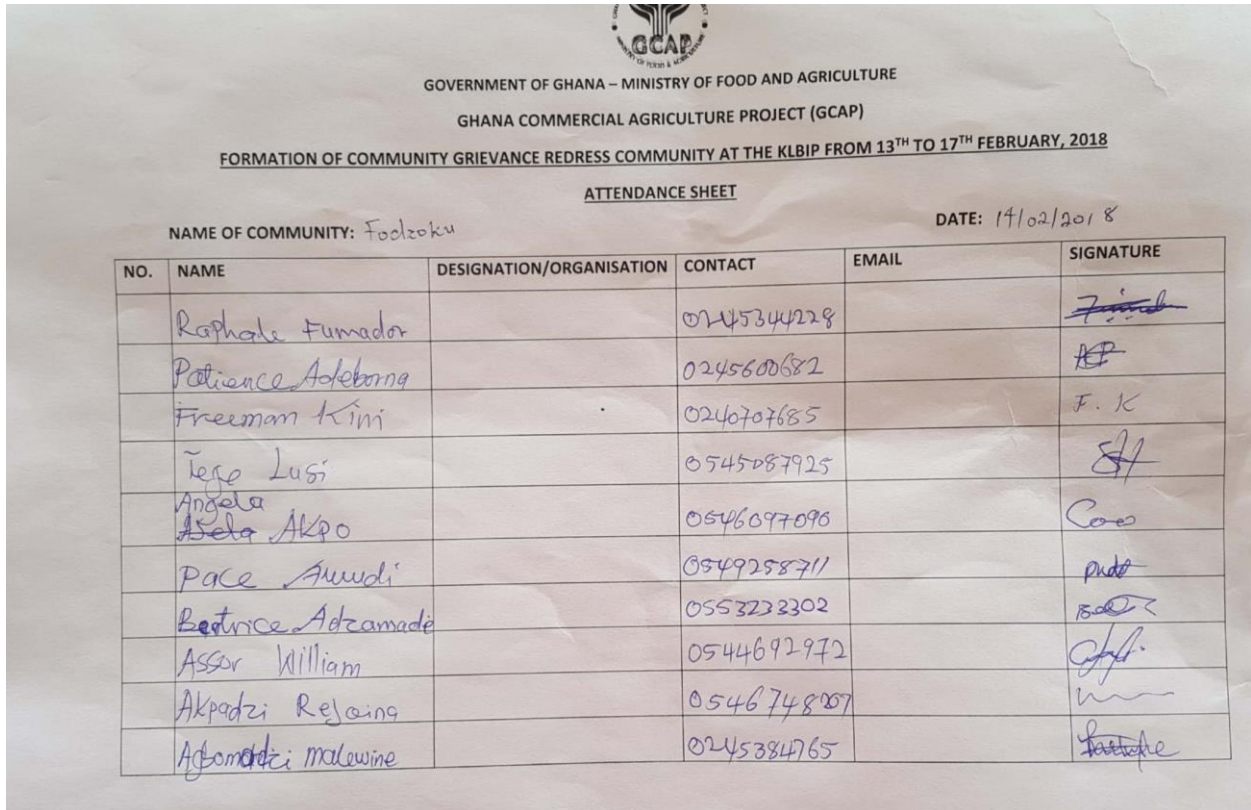 GCAP
MINISTRY OF FOOD & AGRICULTURE
GOVERNMENT OF GHANA – MINISTRY OF FOOD AND AGRICULTURE
GHANA COMMERCIAL AGRICULTURE PROJECT (GCAP)
FORMATION OF COMMUNITY GRIEVANCE REDRESS COMMUNITY AT THE KLBIP FROM 13TH TO 17TH FEBRUARY, 2018
ATTENDANCE SHEET
NAME OF COMMUNITY: Fodzoku DATE: 14/02/2018
NO. NAME DESIGNATION/ORGANISATION CONTACT EMAIL SIGNATURE
Raphale Fumador 0245344228
Patience Adeborna 0245600682
Freeman Kini 0240707685 F. K
Tege Lusi 0545087925
Angela
Akpo 0546097090
Pace 0549258711
Beatrice Adzamade 0553233302
Assor William 0544692972
Akpadzi Rejoing
malewine 0245384765